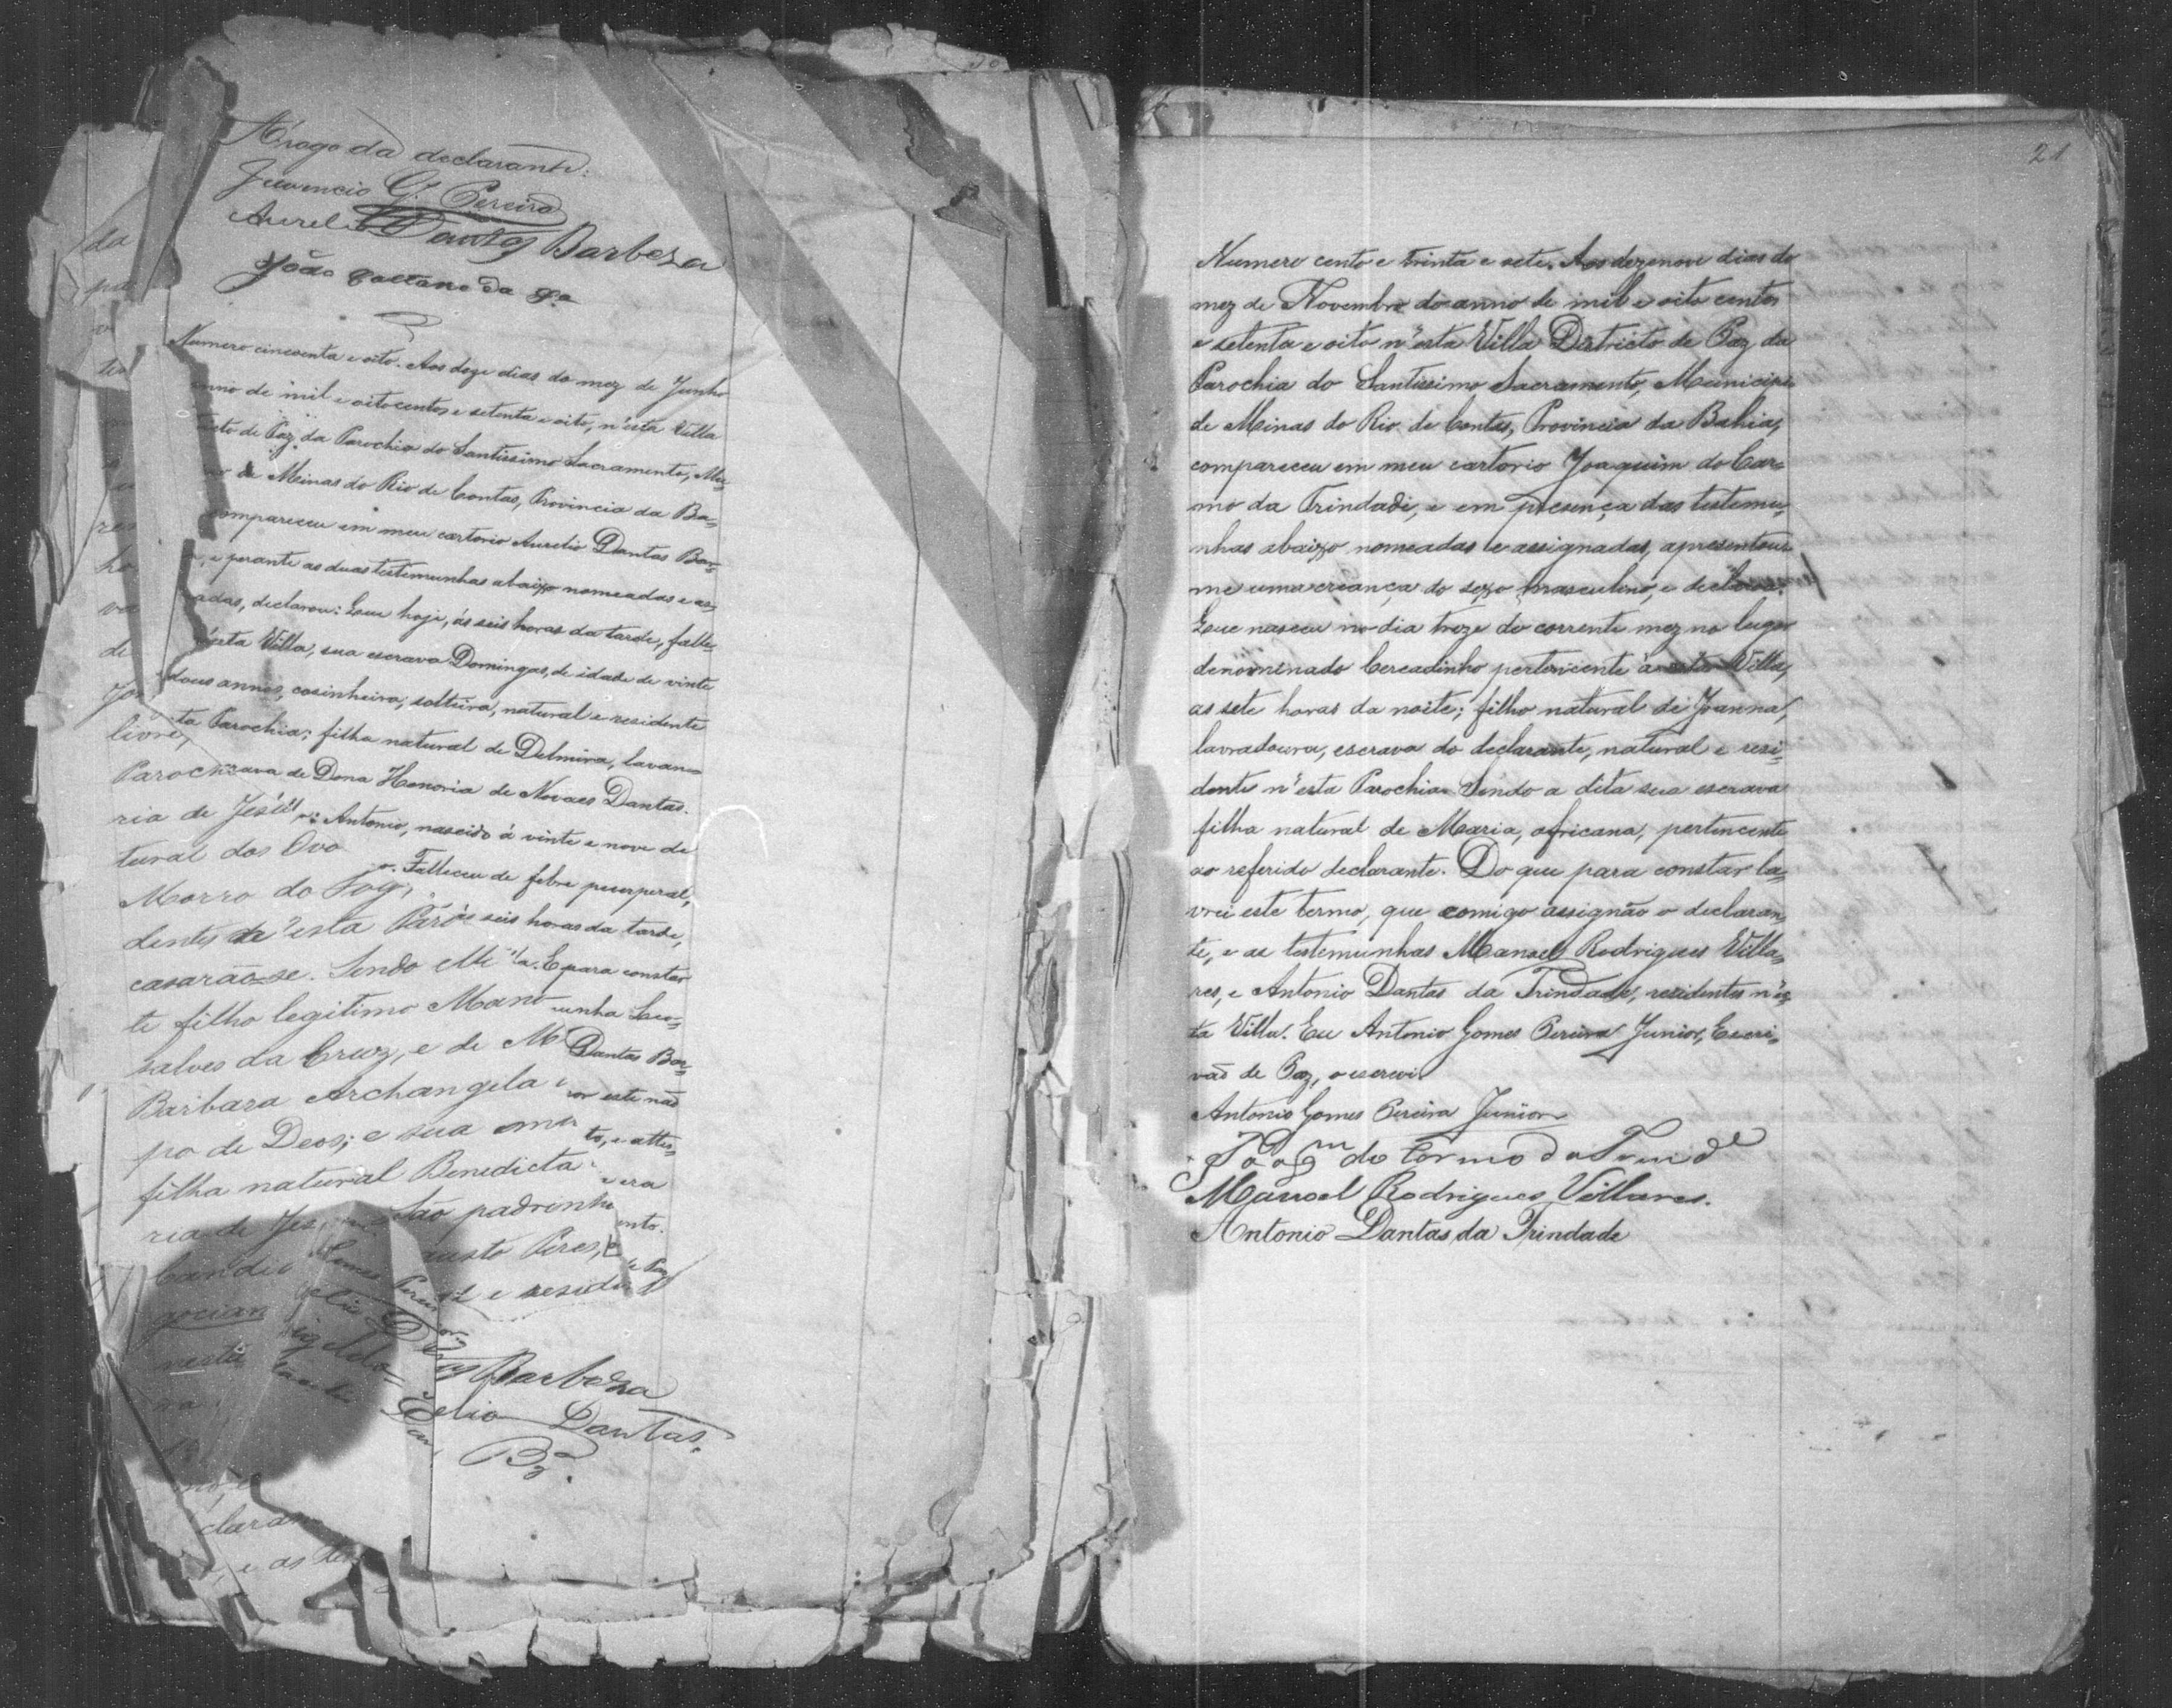 A rogo da declarante:
Juvencio G. Pereira
Aurelio Dantas Barboza
João Caetano da Sa
Numero cincoenta e oito. Aos doze dias do mez de Junho
anno de mil e oitocentos e setenta e oito, n'esta Villa
de Paz da Parochia do Santissimo Sacramento, Mu-
de Minas do Rio de Contas, Provincia da Ba-
compareceu em meu cartorio Aurelio Dantas Bar-
e perante as duas testimunhas abaixo nomeadas e as-
adas, declarou: Que hoje, ás seis horas da tarde, falle-
esta Villa, sua escrava Domingas, de idade de vinte
dous annos, cosinheira, solteira, natural e residente
ta Parochia; filha natural de Delmira, lavan-
rava de Dona Honoria de Novaes Dantas.
Antonio, nascido á vinte e nove de
Falleceu de febre puerperal,
ás seis horas da tarde,
E para constar
unha Leo-
Dantas Bar-
or este não
to, e attes-
era
ento.
da
pa
res
ho
va
de
livre,
Paroch
ria de Jesus
tural dos Ovo
Morro do Fogo
dentes de esta Paro
casarão-se. Sendo elle
te filho legitimo Mano
salves da Cruz, e de M
Barbara Archangela
po de Deos; e sua
filha natural Benedicta
ria de Jes São padrinho
Candi usto Peres, e
gocian e residen
nesta
Barboza
elio Dantas
Bza.
claran
, e as tes
21
Numero cento e trinta e sete. Aos dezenove dias do
mez de Novembro do anno de mil e oito centos
e setenta e oito n'esta Villa Districto de Paz da
Parochia do Santissimo Sacramento, Municipio
de Minas do Rio de Contas, Provincia da Bahia,
compareceu em meu cartorio Joaquim do Car-
mo da Trindade, e em presença das testemu-
nhas abaixo nomeadas e assignadas, apresentou-
me uma creança do sexo masculino, e declarou:
Que nasceu no dia treze do corrente mez no lugar
denominado Cercadinho pertencente á esta Villa,
as sete horas da noite; filho natural de Joanna,
lavradoura, escrava do declarante, natural e resi-
dente n'esta Parochia. Sendo a dita sua escrava
filha natural de Maria, africana, pertencente
ao referido declarante. Do que para constar la-
vrei este termo, que comigo assignão o declaran-
te, e as testemunhas Manoel Rodrigues Villa-
res, e Antonio Dantas da Trindade, residentes n'es-
ta Villa. Eu Antonio Gomes Pereira Junior, Escri-
vão de Paz, o escrevi.
Antonio Gomes Pereira Junior
Joaqm do Carmo da Trinde
Manoel Rodrigues Villares.
Antonio Dantas da Trindade